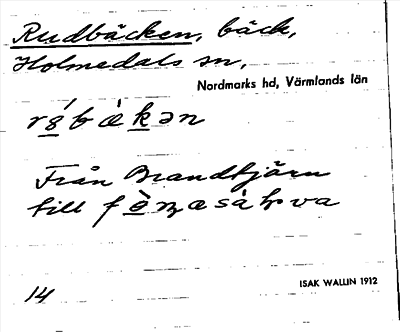 Rudbäcken, bäck,
Holmedals sn,
Nordmarks hd, Värmlands län
Från Brandtjärn
till
14
ISAK WALLIN 1912